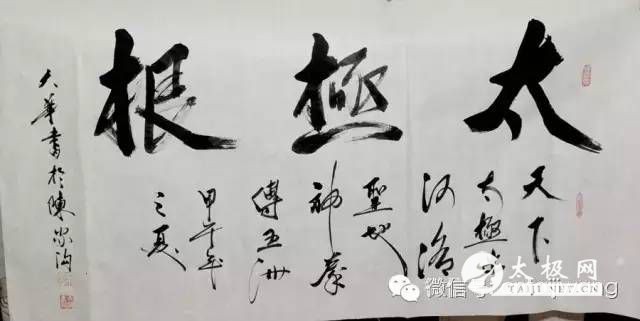 太極根
天下
太極出
河洛
聖地
神拳
傳五洲
甲午年
之夏
大華書於陳家沟
微信
太极网
TAIJI.NET.CN